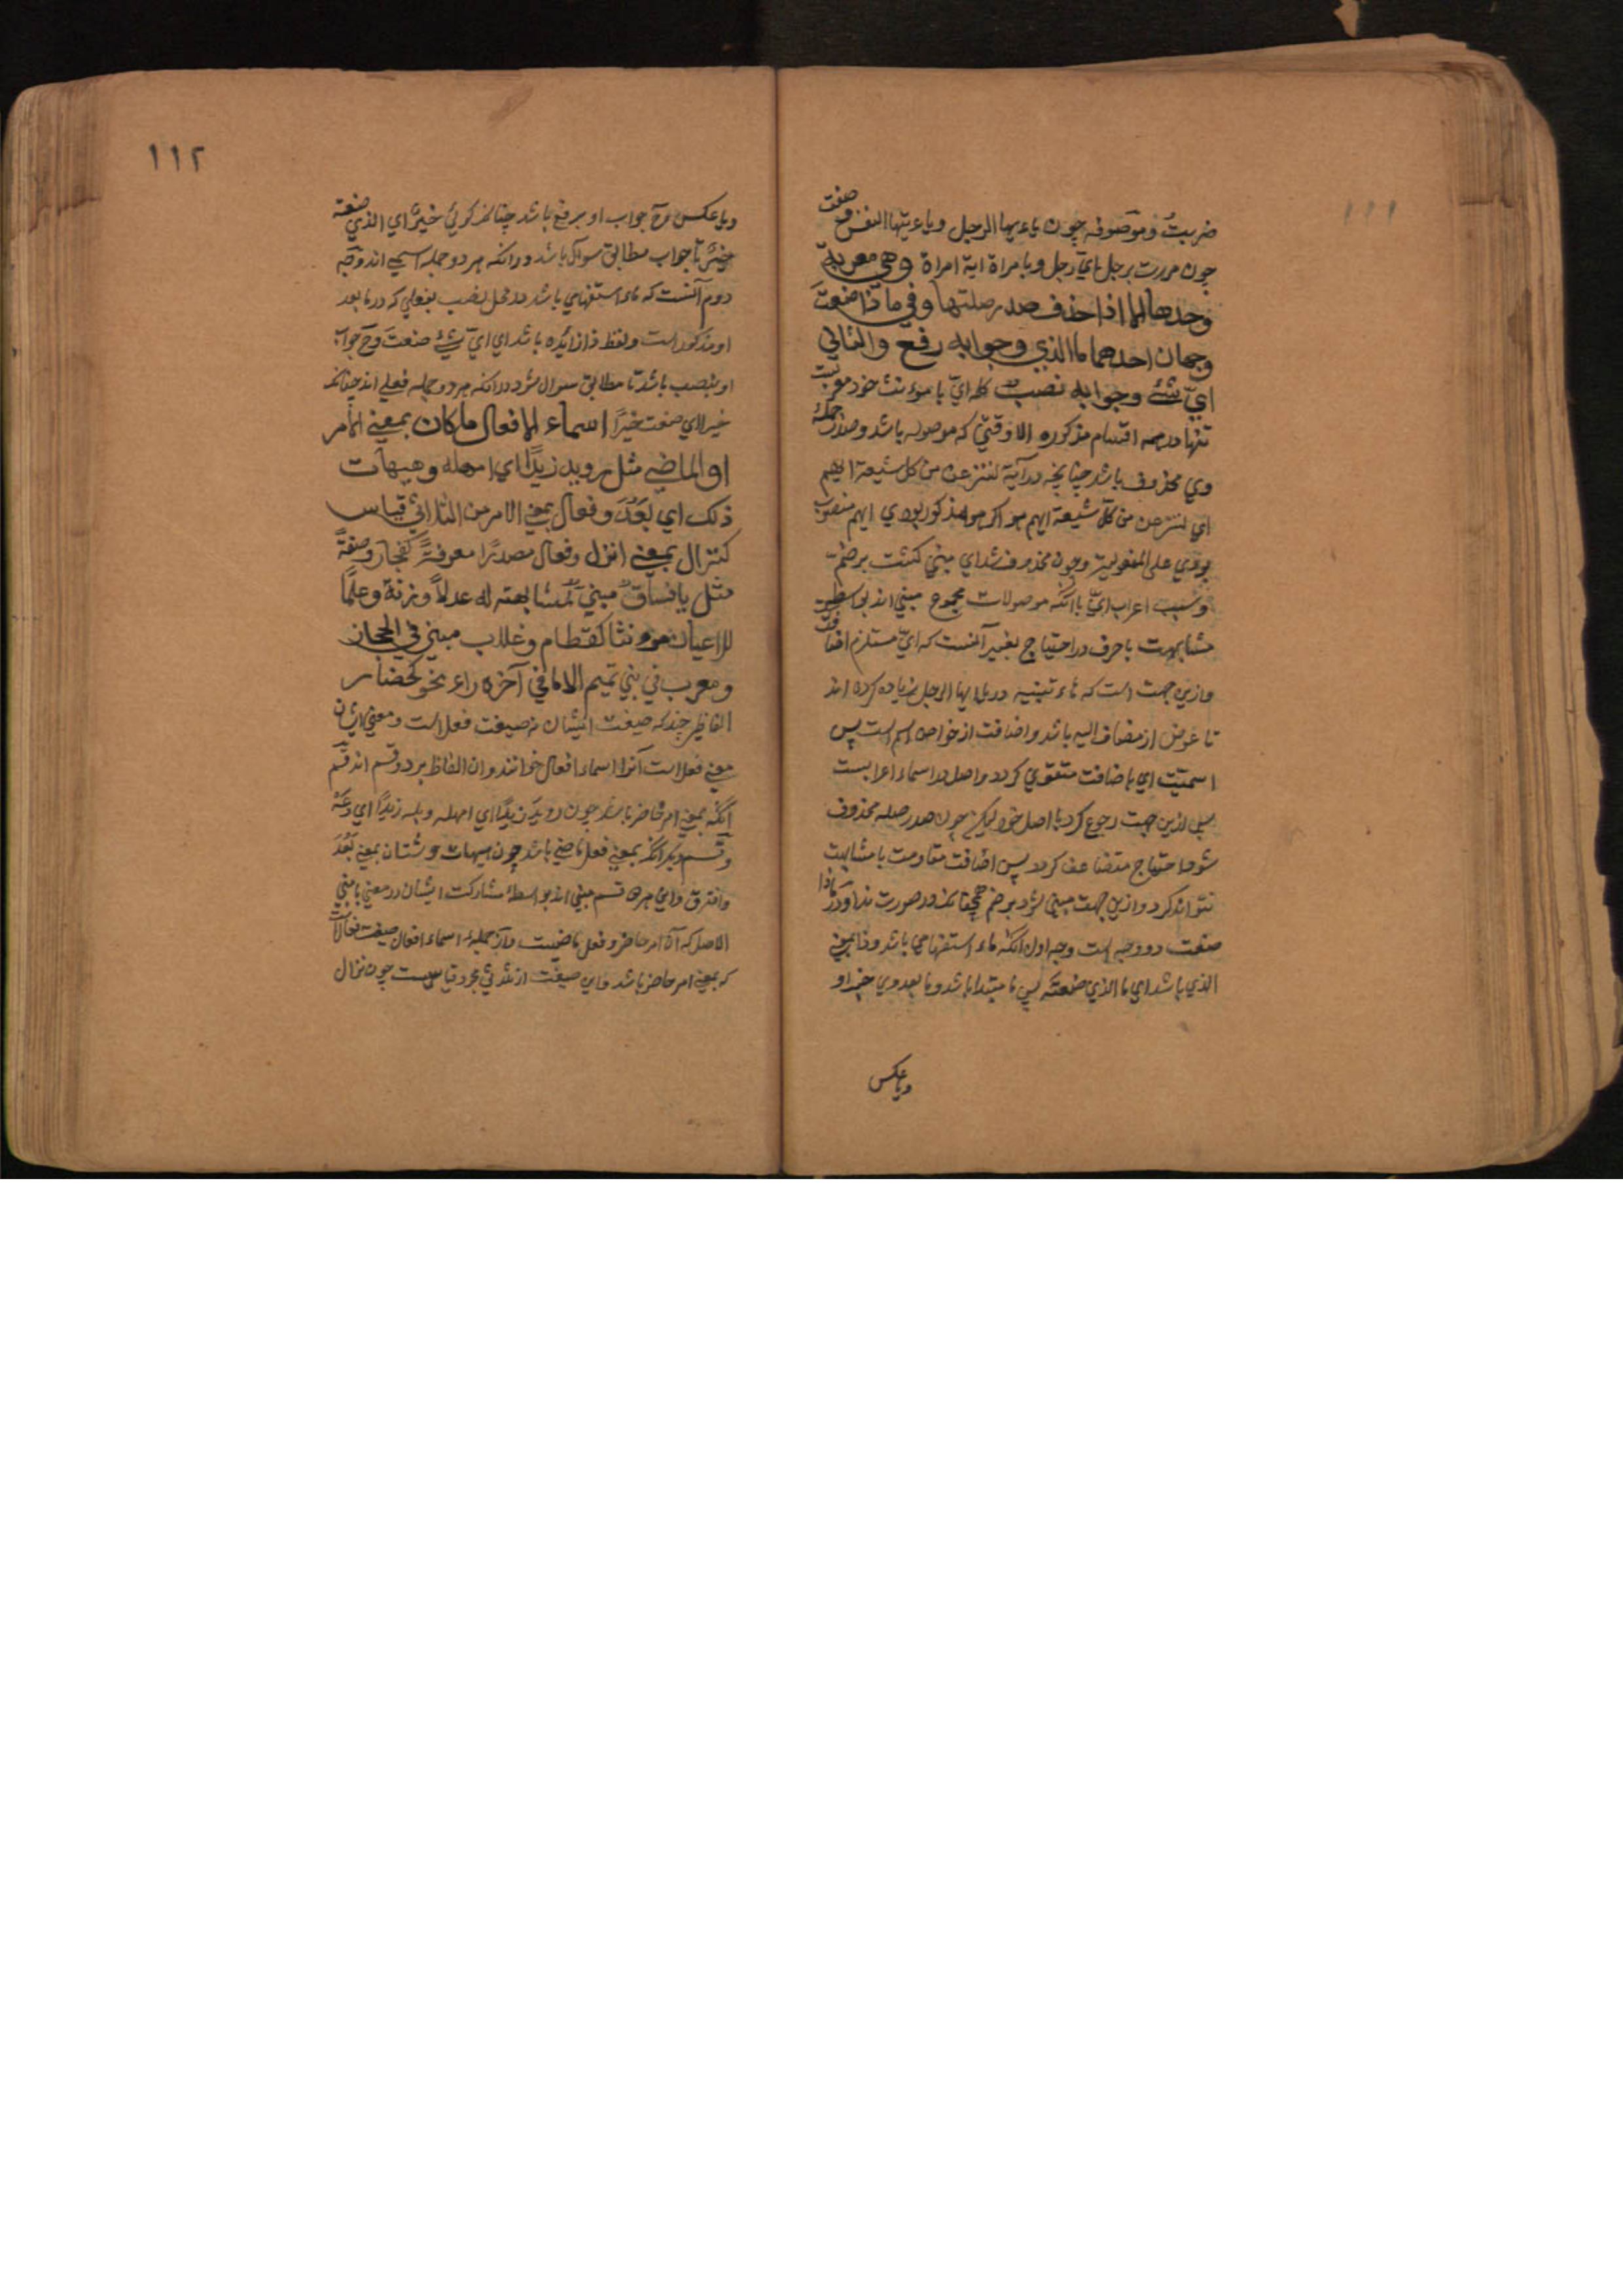 ١١١
ضربت وموصوفه چون يا ايها الرجل ويا ايتها النفس وصفت
چون مررت برجل اي رجل وبامراة اية امراة وهي معربة
وحدها الا اذا حذف صدر صلتها وفي ماذا صنعت
وجهان احدهما ما الذي وجوابه رفع والثاني
اي شئ وجوابه نصب كله اي با مونث خود معربست
تنها در همه اقسام مذكوره الا وقتي كه موصوله باشد وصدر جمله
وي محذوف باشد چنانچه در آية لننزعن من كل شيعة ايهم
اي لننزعن من كل شيعة ايهم هو اكر هو مذكور بودي ايهم منصوب
بودي على المفعولية وچون محذوف شد اي مبني كشت بر ضم
وسبب اعراب اي با آنكه موصولات مجموع مبني اند بواسطه
مشابهت با حرف در احتياج بغير آنست كه اي مستلزم اضافت
وازين جهت است كه هاء تنبيه در يا ايها الرجل زياده كرده اند
تا عوض از مضاف اليه باشد واضافت از خواص اسم است پس
اسميت اي باضافت متقوي كردد واصل در اسماء اعرابست
پس ازين جهت رجوع كرد با اصل خود ليكن چون صدر صله محذوف
شود احتياج متضاعف كردد پس اضافت مقاومت با مشابهت
نتواند كرد وازين جهت مبني شود بر ضم همچنانكه در صورت ندا ودر ماذا
صنعت دو وجه است وجه اول آنكه ماء استفهامي باشد وذا بمعني
الذي باشد اي ما الذي صنعته پس ما مبتدا باشد وما بعد وي خبر او
ويا عكس
١١٢
ويا عكس وح جواب او برفع باشد چنانكه كوئي خير اي الذي صنعته
خير تا جواب مطابق سوال باشد در آنكه هر دو جمله اسمي اند ووجه
دوم آنست كه ماء استفهامي باشد در محل نصب بفعلي كه در ما بعد
او مذكور است ولفظ ذا زائده باشد اي اي شئ صنعت وح جواب
او بنصب باشد تا مطابق سوال شود در آنكه هر دو جمله فعلي اند چنانكه
خيرا اي صنعت خيرا اسماء الافعال ما كان بمعني الامر
او الماضي مثل رويد زيدا اي امهله وهيهات
ذلك اي بعد وفعال بمعني الامر من الثلاثي قياس
كنزال بمعني انزل وفعال مصدرا معرفة كفجار وصفة
مثل يا فساق مبني لمشابهته له عدلا وزنة وعلما
للاعيان مونثا كقطام وغلاب مبني في الحجاز
ومعرب في بني تميم الا ما في آخره راء نحو حضار
الفاظي چند كه صيغت ايشان نه صيغت فعل است ومعني ايشان
معني فعل است آنرا اسماء افعال خوانند وان الفاظ بر دو قسم اند قسم
آنكه بمعني امر حاضر باشد چون رويد زيدا اي امهله وبله زيدا اي دعه
وقسم ديكر آنكه بمعني فعل ماضي باشد چون هيهات وشتان بمعني بعد
وافترق واين هر دو قسم مبني اند بواسطه مشاركت ايشان در معني با مبني
الاصل كه آن امر حاضر وفعل ماضيست واز جمله اسماء افعال صيغت فعالست
كه بمعني امر حاضر باشد واين صيغت از ثلاثي مجرد قياسيست چون نزال